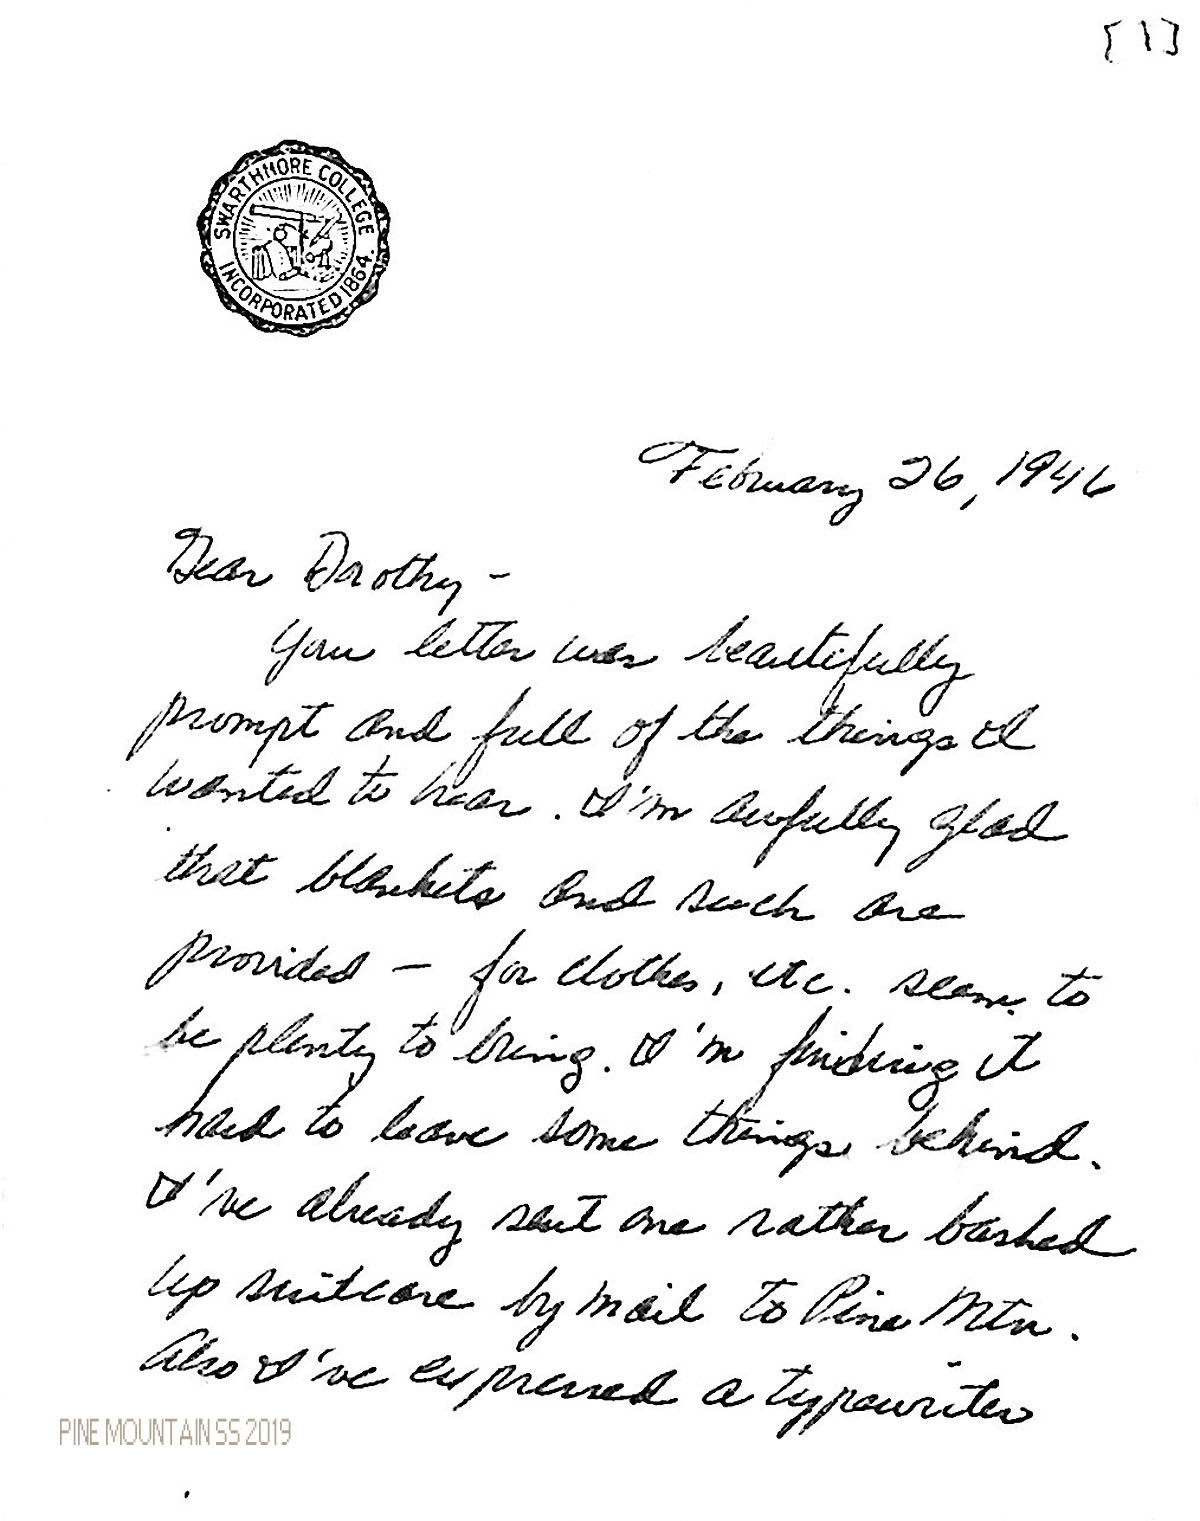 [1]
SWARTHMORE COLLEGE
INCORPORATED 1864.
February 26, 1946
Dear Dorothy -
Your letter was beautifully
prompt and full of the things I
wanted to hear. I'm awfully glad
that blankets and such are
provided - for clothes, etc. seem to
be plenty to bring. I'm finding it
hard to leave some things behind.
I've already sent one rather bashed
up suitcase by mail to Pine Mtn.
Also I've expressed a typewriter
PINE MOUNTAIN SS 2019